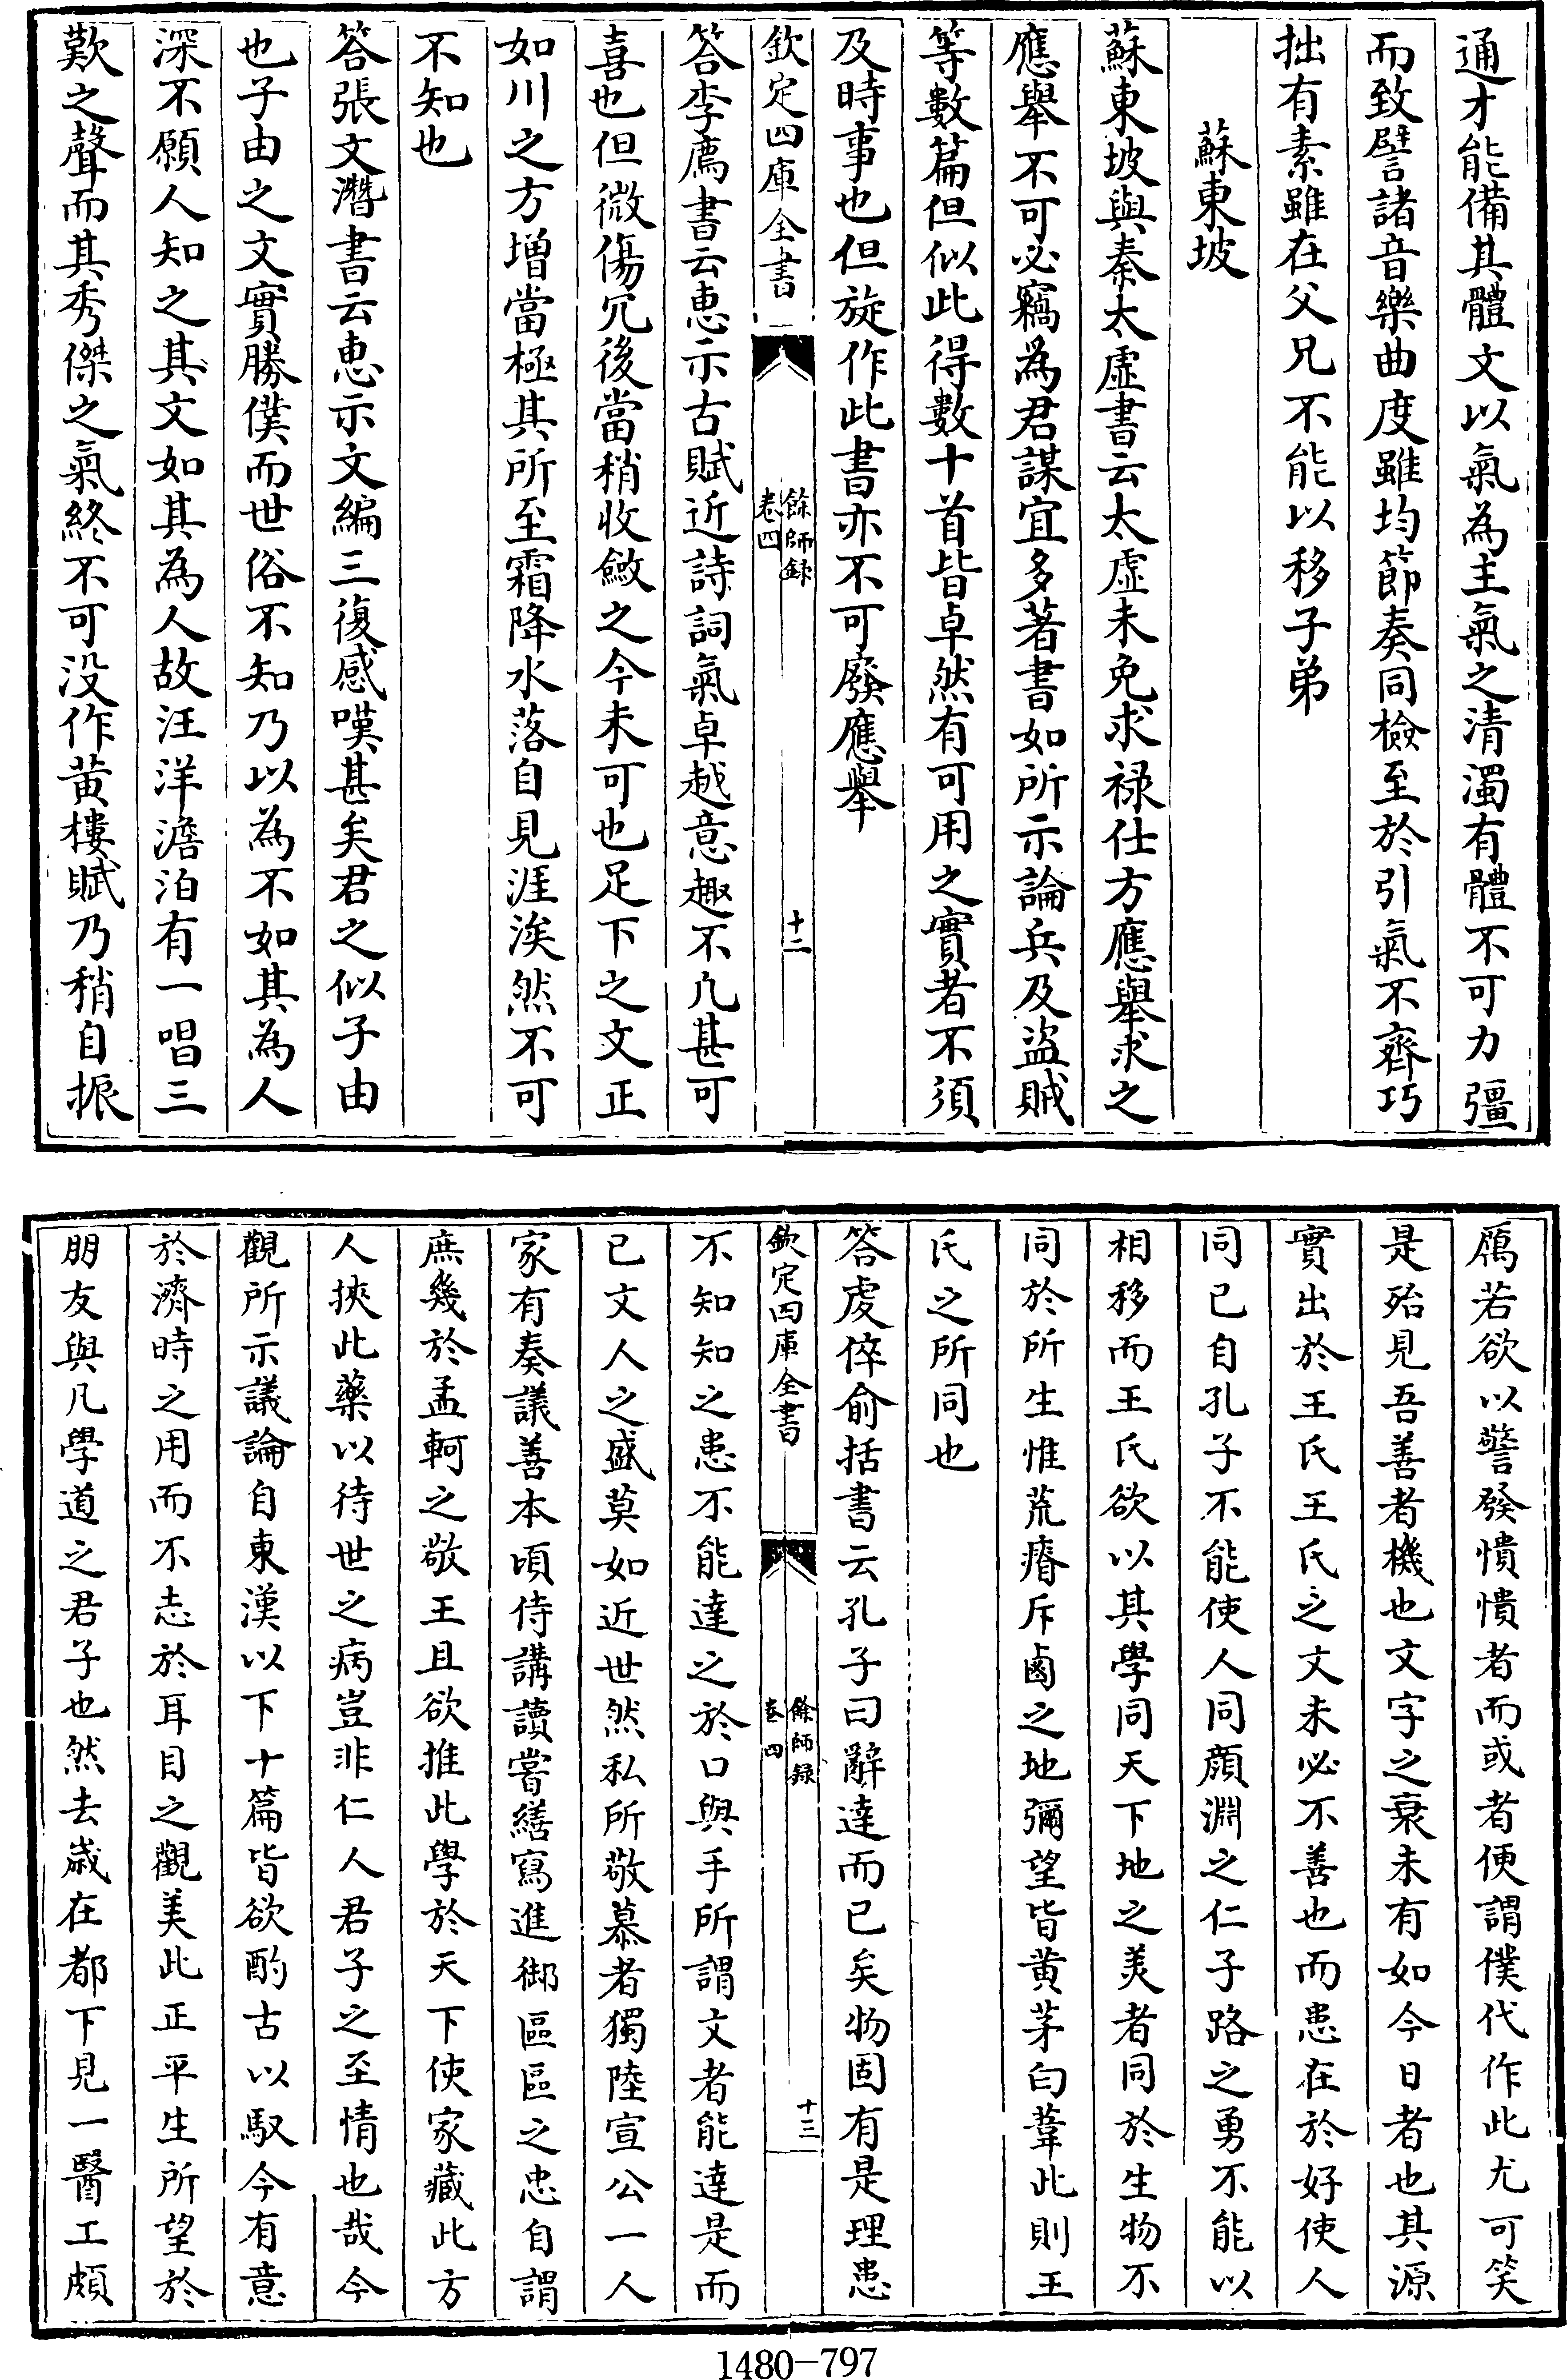 通才能備其體文以氣為主氣之清濁有體不可力彊
而致譬諸音樂曲度雖均節奏同檢至於引氣不齊巧
拙有素雖在父兄不能以移子弟
蘇東坡
蘇東坡與秦太虛書云太虛未免求祿仕方應舉求之
應舉不可必竊為君謀宜多著書如所示論兵及盜賊
等數篇但似此得數十首皆卓然有可用之實者不須
及時事也但旋作此書亦不可廢應舉
欽定四庫全書
餘師錄
卷四
十二
答李廌書云惠示古賦近詩詞氣卓越意趣不凡甚可
喜也但微傷冗後當稍收斂之今未可也足下之文正
如川之方增當極其所至霜降水落自見涯涘然不可
不知也
答張文潛書云惠示文編三復感嘆甚矣君之似子由
也子由之文實勝僕而世俗不知乃以為不如其為人
深不願人知之其文如其為人故汪洋澹泊有一唱三
歎之聲而其秀傑之氣終不可沒作黃樓賦乃稍自振
厲若欲以警發憒憒者而或者便謂僕代作此尤可笑
是殆見吾善者機也文字之衰未有如今日者也其源
實出於王氏王氏之文未必不善也而患在於好使人
同已自孔子不能使人同顏淵之仁子路之勇不能以
相移而王氏欲以其學同天下地之美者同於生物不
同於所生惟荒瘠斥鹵之地彌望皆黃茅白葦此則王
氏之所同也
答虔倅俞括書云孔子曰辭達而已矣物固有是理患
欽定四庫全書
餘師錄
卷四
十三
不知知之患不能達之於口與手所謂文者能達是而
已文人之盛莫如近世然私所敬慕者獨陸宣公一人
家有奏議善本頃侍講讀嘗繕寫進御區區之忠自謂
庶幾於孟軻之敬王且欲推此學於天下使家藏此方
人挾此藥以待世之病豈非仁人君子之至情也哉今
觀所示議論自東漢以下十篇皆欲酌古以馭今有意
於濟時之用而不志於耳目之觀美此正平生所望於
朋友與凡學道之君子也然去歲在都下見一醫工頗
1480-797